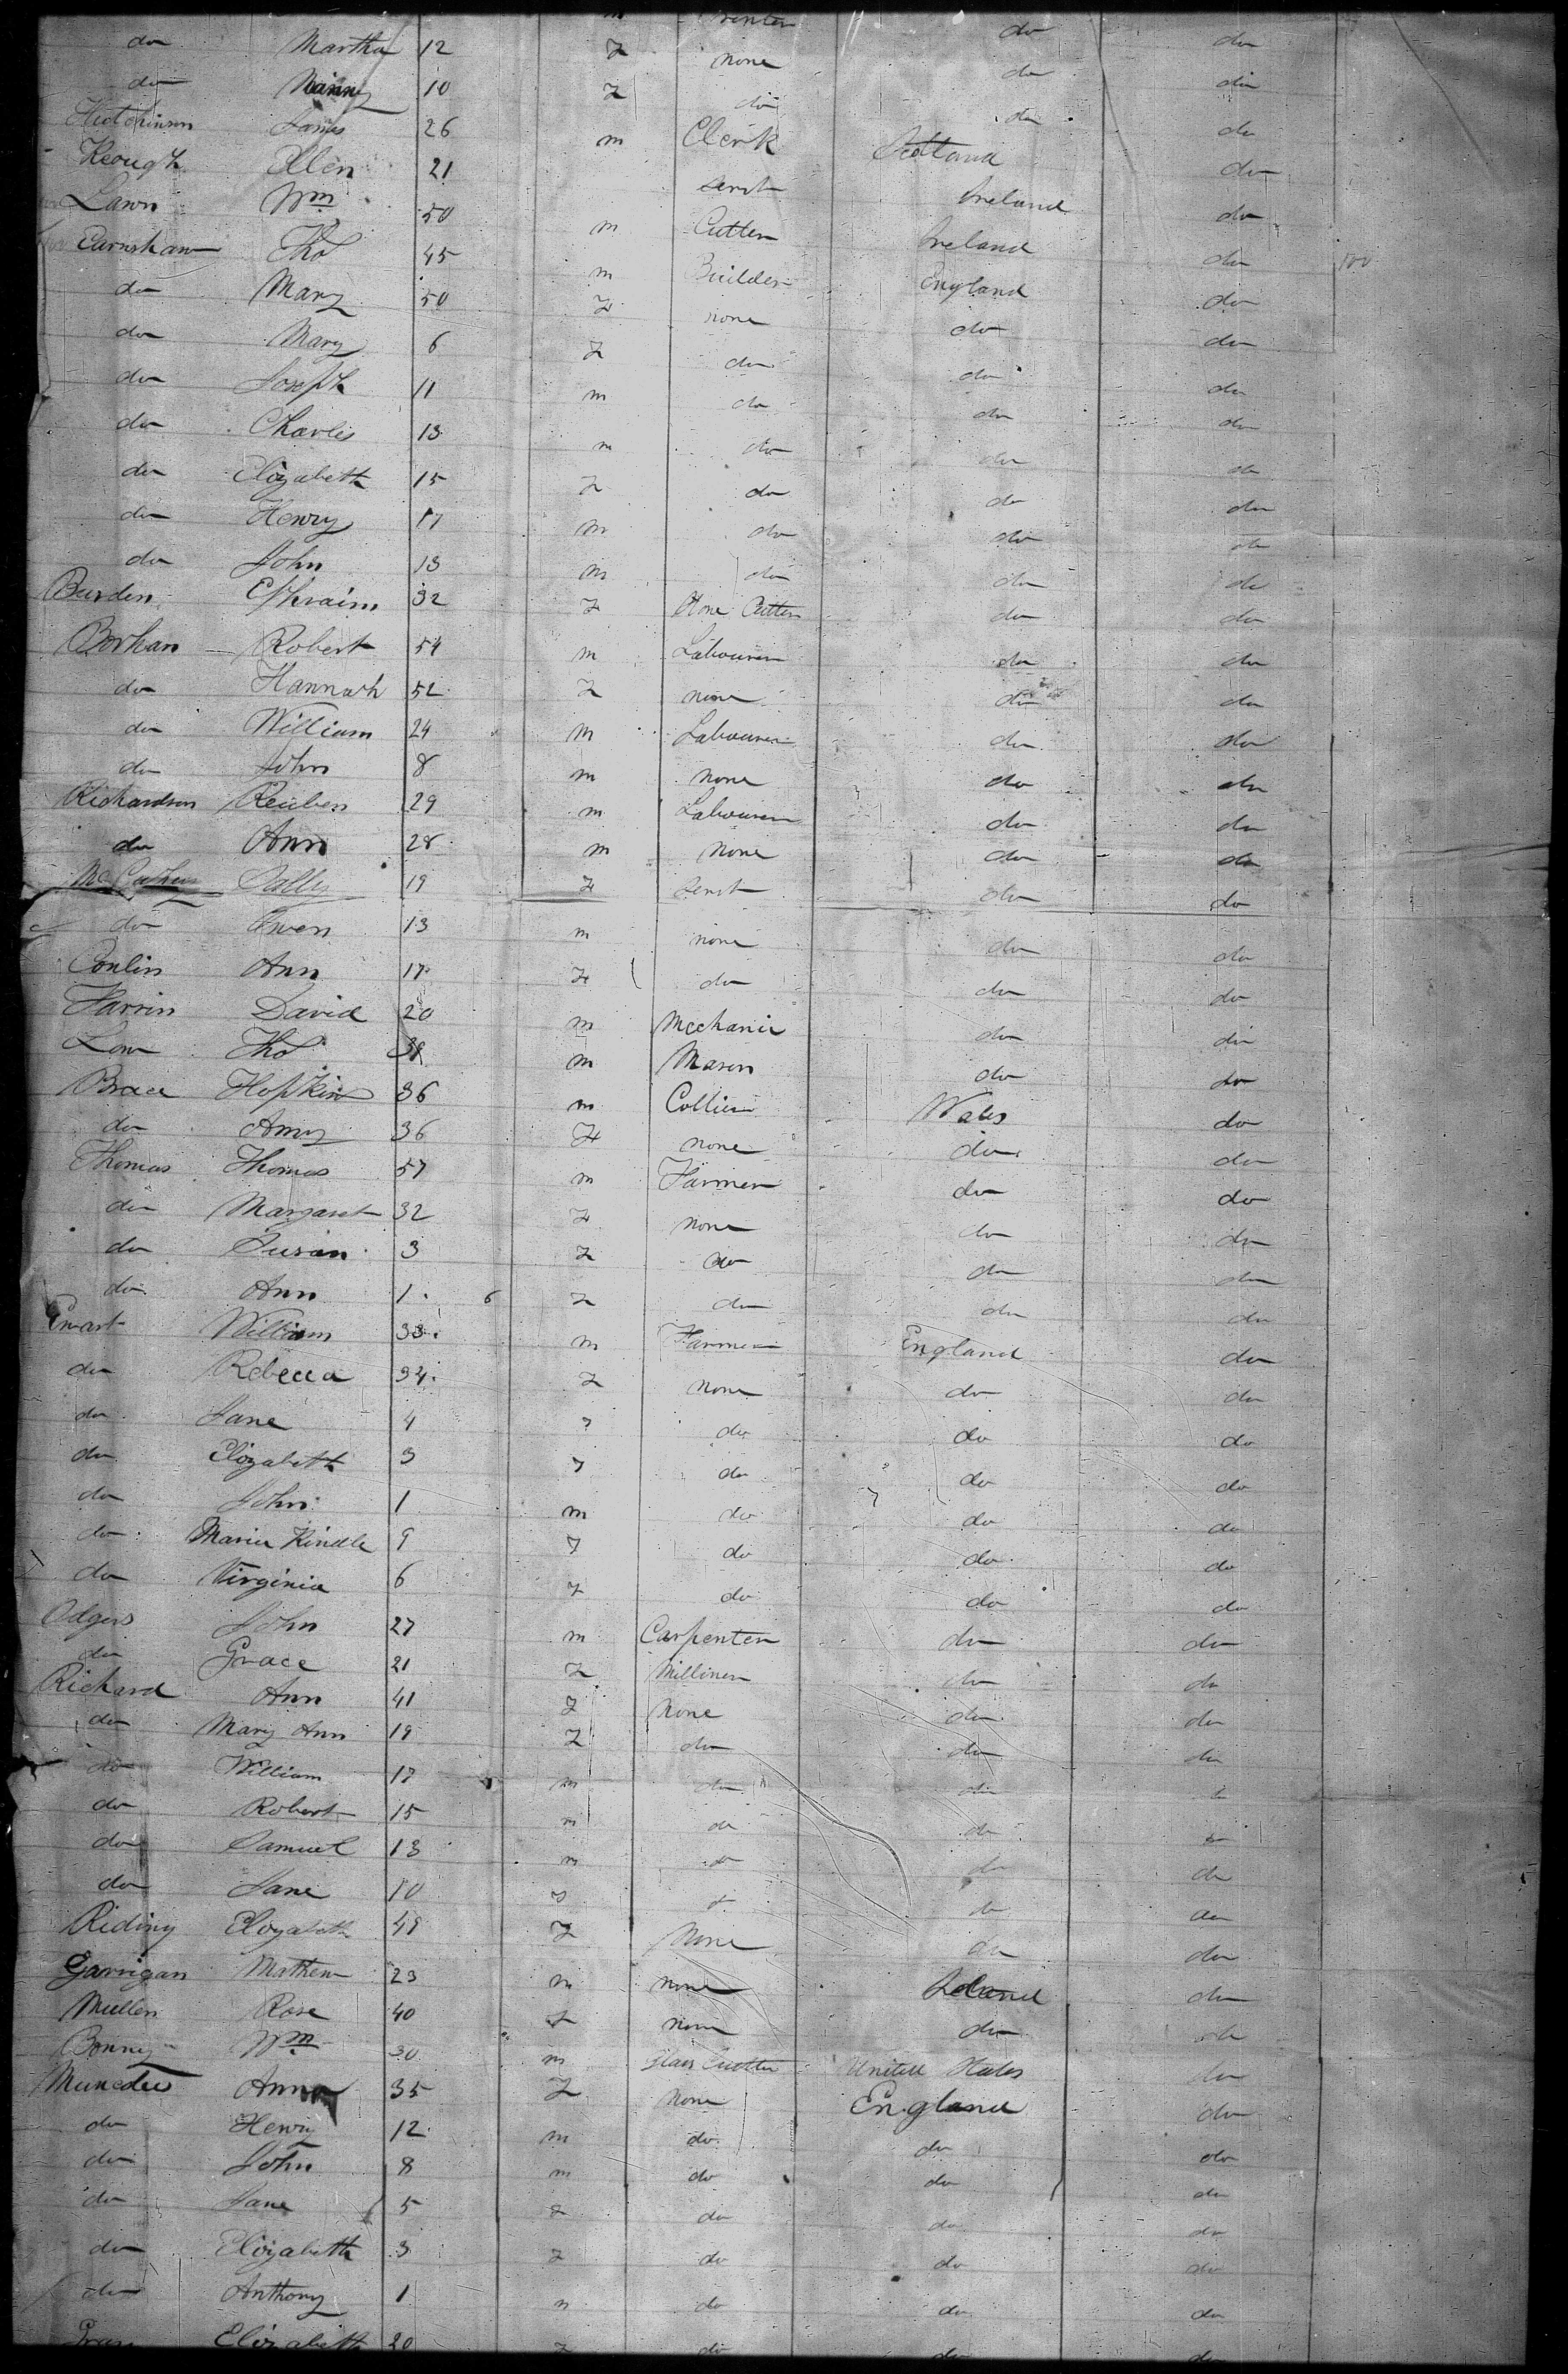 m Printer do do
do Martha 12 f none do do
do Nanny 10 f do do do
Hutchinson James 26 m Clerk Scotland do
Keough Ellen 21 Servt Ireland do
Lawn Wm 50 m Cutter Ireland do
Earnshaw Tho 45 m Builder England do
do Mary 50 f none do do
do Mary 6 f do do do
do Joseph 11 m do do do
do Charles 13 m do do do
do Elizabeth 15 f do do do
do Henry 17 m do do do
do John 13 m do do do
Burden Ephraim 32 f Stone Cutter do do
Borhan Robert 54 m Labourer do do
do Hannah 52 f none do do
do William 24 m Labourer do do
do John 8 m none do do
Richardson Reuben 29 m Labourer do do
do Ann 28 m none do do
Sally 19 f Servt do do
do Owen 13 m none do do
Conlin Ann 17 f do do do
Harrin David 20 m Mechanic do do
Low Tho 38 m Mason do do
Brace Hopkin 36 m Collier Wales do
do Amy 36 f none do do
Thomas Thomas 57 m Farmer do do
do Margaret 32 f none do do
do Susan 3 f do do do
do Ann 1 6 f do do do
Ewart William 33 m Farmer England do
do Rebecca 34 f none do do
do Jane 4 f do do do
do Elizabeth 3 f do do do
do John 1 m do do do
do Maria Kindle 9 f do do do
do Virginia 6 f do do do
Odgers John 27 m Carpenter do do
do Grace 21 f Milliner do do
Richard Ann 41 f None do do
do Mary Ann 19 f do do do
do William 17 m do do do
do Robert 15 m do do do
do Samuel 13 m do do do
do Jane 10 f do do do
Riding Elizabeth 49 f None do do
Garrigan Mathew 23 m none Ireland do
Mullen Rose 40 f none do do
Bonny Wm 30 m Glass Cutter United States do
Anna 35 f None England do
do Henry 12 m do do do
do John 8 m do do do
do Jane 5 f do do do
do Elizabeth 3 f do do do
do Anthony 1 m do do do
Elizabeth 20 f do do do